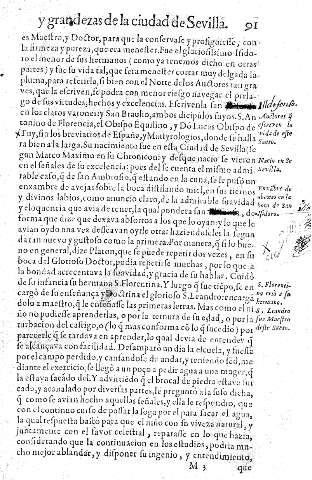 y grandezas de la ciudad de Sevilla. 91
es Maestro, y Doctor, para que la conservase y prosiguiesse, con
la firmeza y pureza, que era menester. Fue el gloriosissimo Isido-
ro el menor de sus hermanos (como ya tenemos dicho en otras
partes) y fue su vida tal, que será menester correr muy delgada la
pluma, para referirla, si bien con el Norte de los Auctores tan gra
ves, que la escriven, se podra con menor riesgo navegar el pie la-
go de sus virtudes, hechos y excelencias. Escrivenla san
en los claros varones y San Braulio, ambos dicipulos suyos. S. An
tonino de Florencia, el Obispo Equilino, y Dõ Lucas Obispo de
Tuy, sin los breviarios de España, y Martyrologios, donde se halla
ra bien a la larga. Su nacimiento fue en esta Ciudad de Sevilla, se
gun Marco Maximo en su Chroniconi y desque nacio se vieron
en el señales de su excelencia: pues del se cuenta el mismo admi
rable caso, q̃ de san Ambrosio, q̃ estando en la cuna, se le puso un
enxambre de avejas sobre la boca distilando miel, en sus tiernos
y divinos labios, como anuncio claro, de la admirable suavidad
y eloquencia que avia de tener, la qual ponderan san
forma que dize que devava absortos a los que lo oyan: y lo que
avian oydo una vez desseavan oyrle otras haziendoles la segun
da tan nueva y gustosa como la primera. Por manera, q̃ si lo bue-
no en general, dize Platon, que se puede repetir dos vezes, en la
boca del Glorioso Doctor, podia repetirse muchas, por lo que a
la bondad acrecentava la suavidad, y gracia de su hablar. Cuidó
de su infancia su hermana S. Florentina. Y luego q̃ fue tiẽpo, se en
cargó de su enseñança y Doctrina el glorioso S. Leandro: encargã
dolo a maestro, q̃ le enseñasse las primeras letras. Mas como el ni
ño no pudiesse aprenderlas, o por la ternura de su edad, o por la
turbacion del castigo, o (lo q̃ mas conforma cõ lo q̃ sucedio) por
parecerle q̃ se tardava en aprender, lo qual devia de entender q̃
se alcançava con facilidad. Desamparo un dia la escuela, y fuesse
por el campo perdido, y cansandose de andar, y teniendo sed, me
diante el exercicio, se llegó a un poço a pedir agua a una muger, q̃
la estava sacãdo del. Y advirtiẽdo q̃ el brocal de piedra estava lu
cado, y acanalado por diversas partes, le preguntó a la susodicha,
q̃ como se avian hecho aquellas señales, y ella le respondio, que
con el continuo curso de passar la soga por el para sacar el agua,
la qual respuesta basto para que el niño con su viveza natural, y
juntamente con el favor celestial, reparasse en lo que hazia,
considerando que la continuacion en los estudios, podria mu-
cho mejor ablandar, y disponer su ingenio, y entendimiento,
M 3 que
Auctores q̃
escriven la
vida de este
Santo.
Nacio en Se
villa.
Enxambre de
avejas en la
boca de San
Isidoro.
S. Florenti-
na crió a su
hermano.
S. Leandro
fue Maestro
deste Santo.